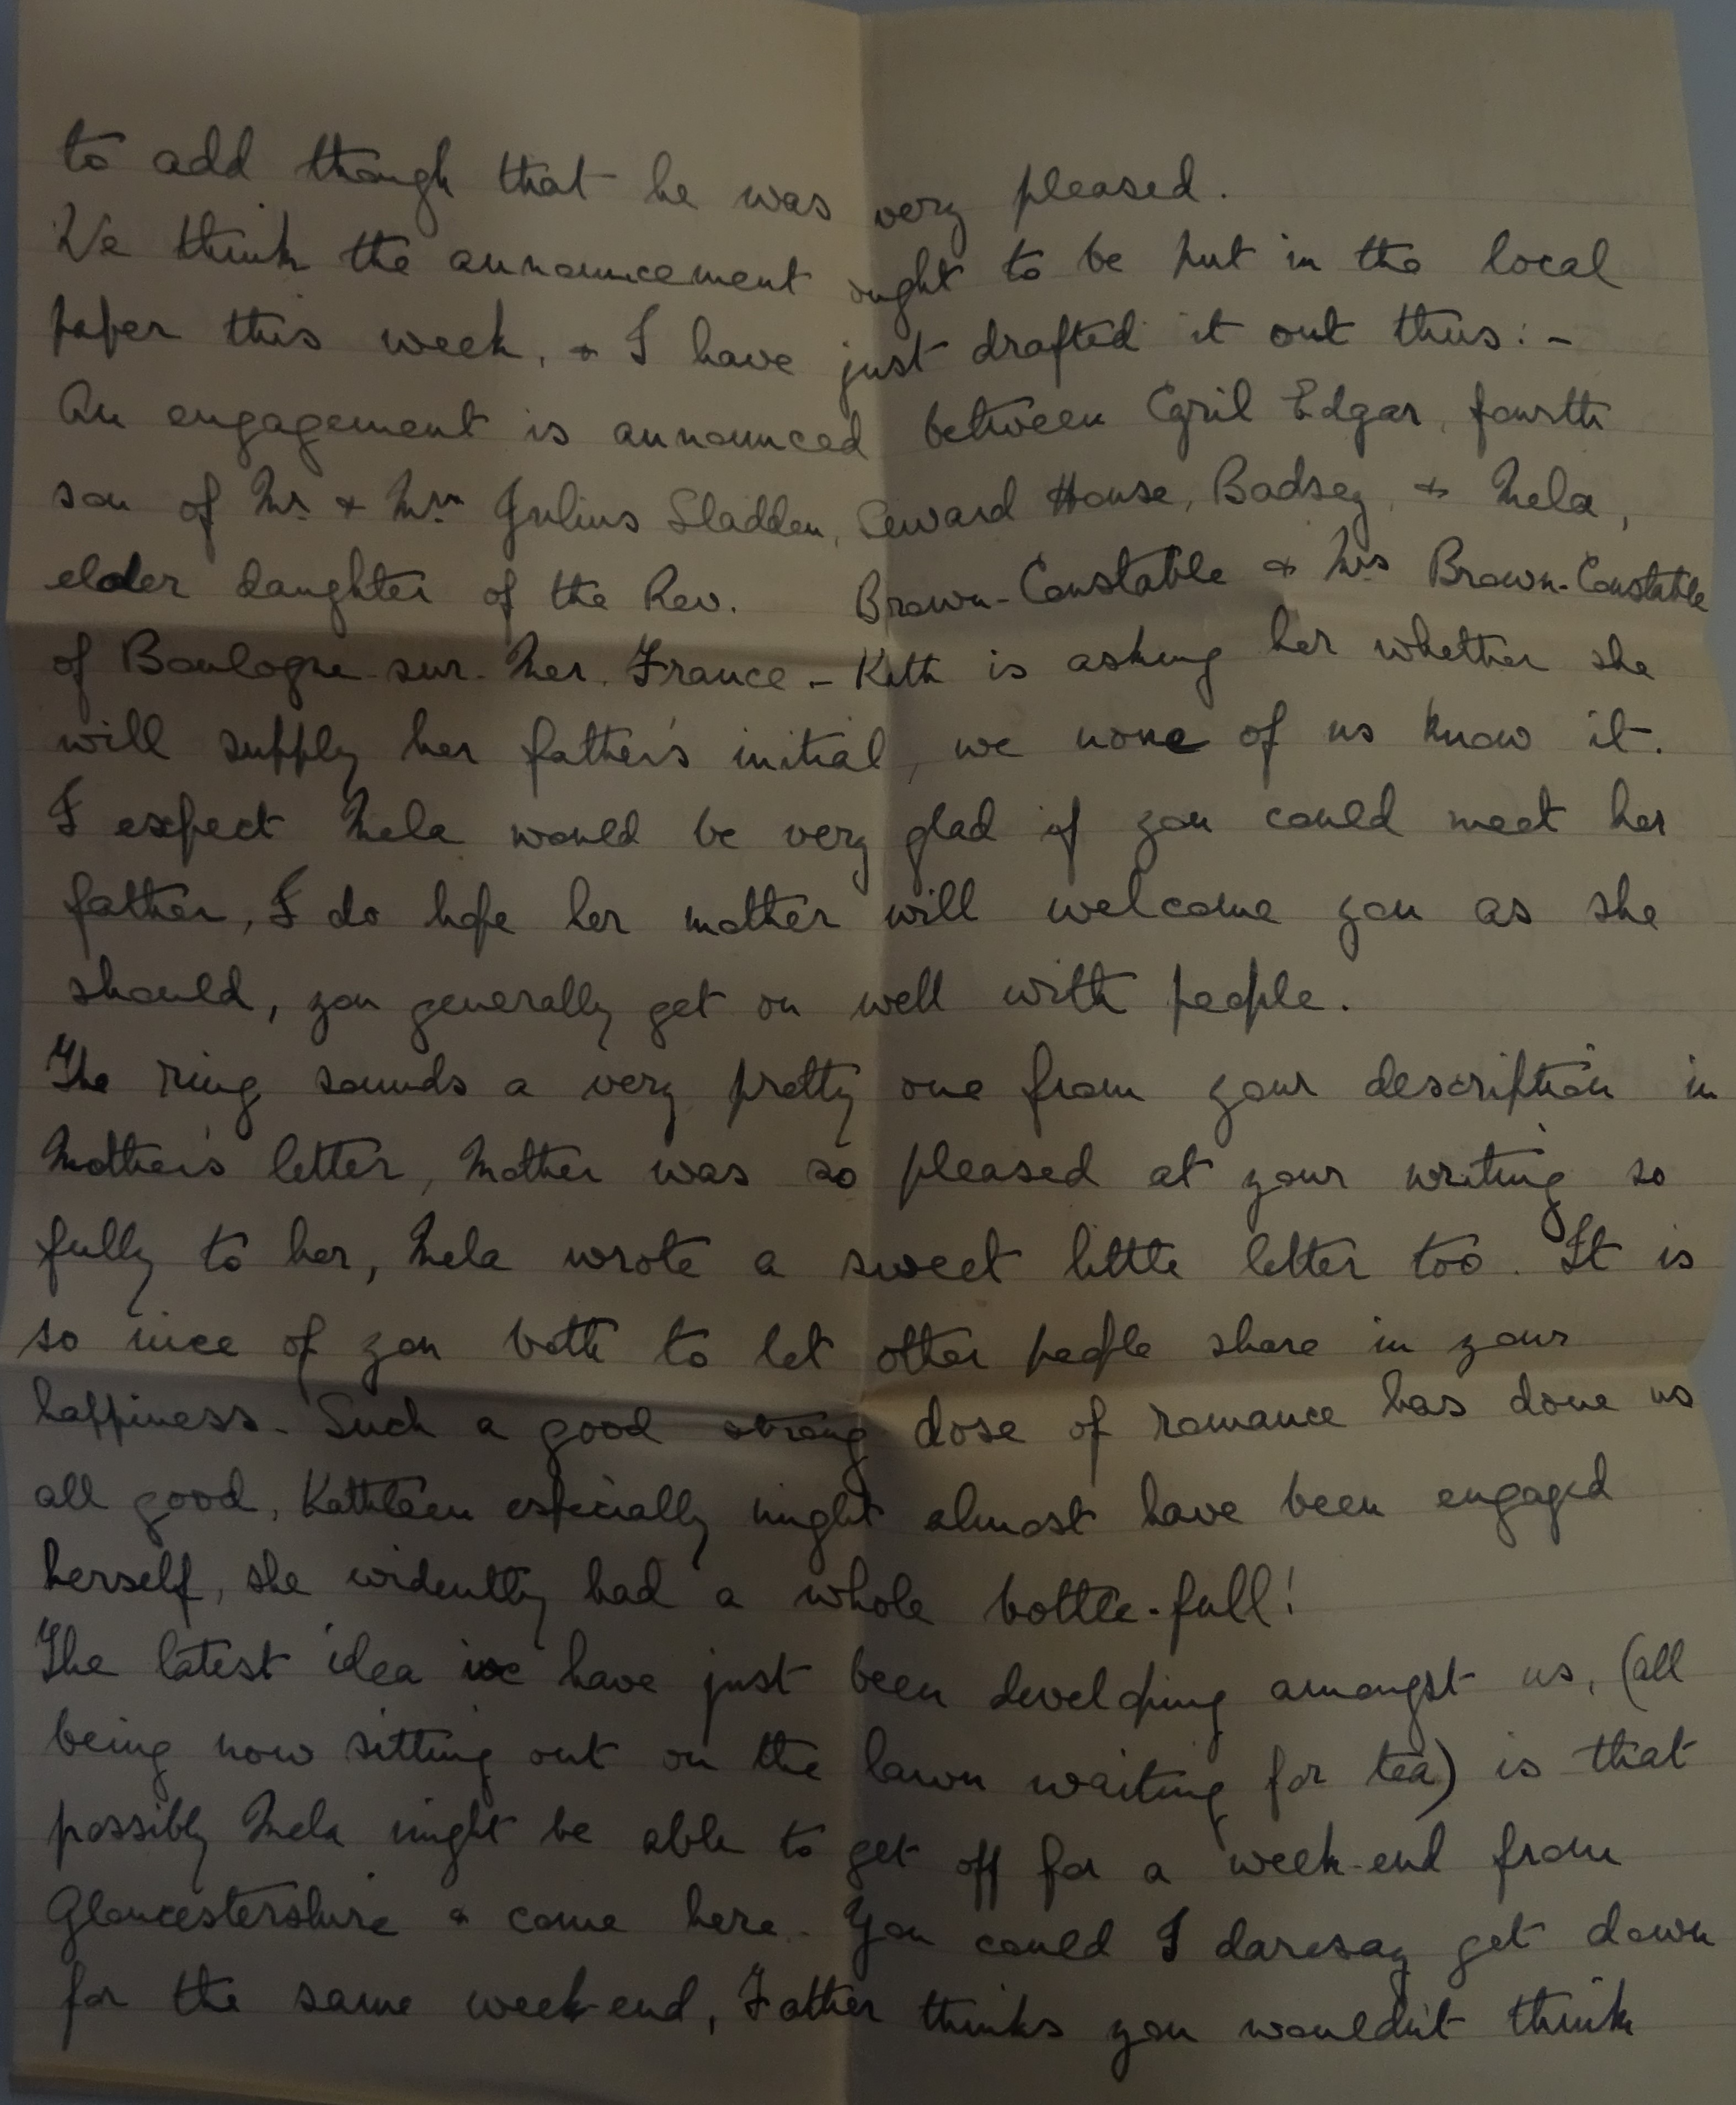 to add though that he was very pleased.
We think the announcement ought to be put in the local
paper this week, & I have just drafted it out thus: -
An engagement is announced between Cyril Edgar, fourth
son of Mr. & Mrs. Julius Sladden, Seward House, Badsey, & Mela,
elder daughter of the Rev. Brown-Constable & Mrs Brown-Constable
of Boulogne-sur-Mer, France - Kath is asking her whether she
will supply her father's initial, we none of us know it.
I expect Mela would be very glad if you could meet her
father, I do hope her mother will welcome you as she
should, you generally get on well with people.
The ring sounds a very pretty one from your description in
Mother's letter, Mother was so pleased at your writing so
fully to her, Mela wrote a sweet little letter too. It is
so nice of you both to let other people share in your
happiness. Such a good strong dose of romance has done us
all good, Kathleen especially might almost have been engaged
herself, she evidently had a whole bottle-full!
The latest idea we have just been developing amongst us, (all
being now sitting out on the lawn waiting for tea) is that
possibly Mela might be able to get off for a week-end from
Gloucestershire & come here. You could I daresay get down
for the same week-end, Father thinks you wouldn't think